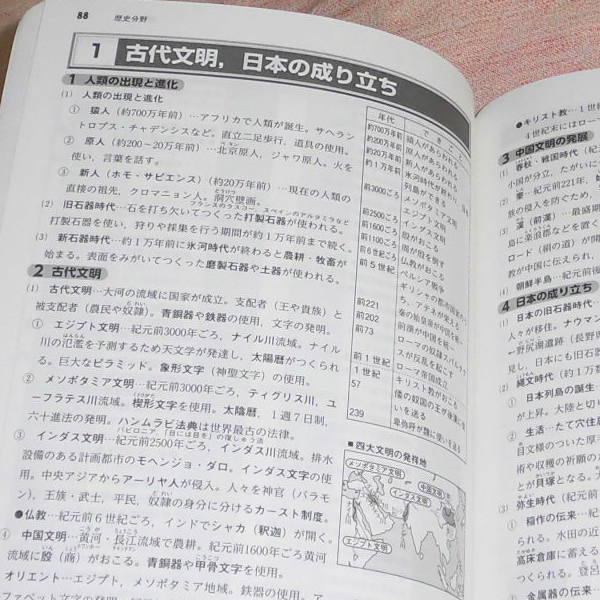 88 歴史分野
1 古代文明，日本の成り立ち
1 人類の出現と進化
(1) 人類の出現と進化
① 猿人（約700万年前）…アフリカで人類が誕生。サヘラン
トロプス・チャデンシスなど。直立二足歩行，道具の使用。
② 原人（約200～20万年前）…北京原人，ジャワ原人。火を
使い，言葉を話す。
③ 新人（ホモ・サピエンス）（約20万年前）…現在の人類の
直接の祖先，クロマニョン人。洞穴壁画。
フランスのラスコー，スペインのアルタミラなど
(2) 旧石器時代…石を打ち欠いてつくった打製石器が使われる。
打製石器を使い，狩りや採集を行う期間が約1万年前まで続く。
(3) 新石器時代…約1万年前に氷河時代が終わると農耕・牧畜が
始まる。表面をみがいてつくった磨製石器や土器が使われる。
2 古代文明
(1) 古代文明…大河の流域に国家が成立。支配者（王や貴族）と
被支配者（農民や奴隷）。青銅器や鉄器の使用，文字の発明。
① エジプト文明…紀元前3000年ごろ，ナイル川流域。ナイル
川の氾濫を予測するため天文学が発達し，太陽暦がつくられ
る。巨大なピラミッド。象形文字（神聖文字）の使用。
② メソポタミア文明…紀元前3000年ごろ，ティグリス川，ユ
ーフラテス川流域。楔形文字を使用。太陰暦，1週7日制，
六十進法の発明。ハンムラビ法典は世界最古の法律。
バビロニア，「目には目を」の復しゅう法
③ インダス文明…紀元前2500年ごろ，インダス川流域。排水
設備のある計画都市のモヘンジョ・ダロ。インダス文字の使
用。中央アジアからアーリヤ人が侵入。人々を神官（バラモ
ン），王族・武士，平民，奴隷の身分に分けるカースト制度。
●仏教…紀元前6世紀ごろ，インドでシャカ（釈迦）が開く。
④ 中国文明…黄河・長江流域で農耕。紀元前1600年ごろ黄河
流域に殷（商）がおこる。青銅器や甲骨文字を使用。
オリエント…エジプト，メソポタミア地域。鉄器の使用，
ファベット文字の発明
年代 できごと
約700万年前 猿人があらわれる
約200万年前 原人があらわれる
約20万年前 新人があらわれる
約1万年前 氷河時代が終わり
列島ができる
前3000ごろ メソポタミア文明
エジプト文明
前2500ごろ インダス文明
前1600ごろ 殷がおこる
前1100ごろ 周が殷を倒す
前6世紀ごろ 仏教がおこる
前5世紀 ペルシア戦争
ギリシャの都市国家のう
ち，アテネが栄える
前221 秦の始皇帝が中国を統一
前202 前漢が中国を統一
前73 ローマの奴隷スパルタク
スが反乱を起こす
前1世紀 ローマ帝国成立
1世紀 キリスト教がおこる
57 倭の奴国の王が後漢に使
いを送る
239 卑弥呼が魏に使いを送る
■四大文明の発祥地
メソポタミア文明
中国文明
インダス文明
エジプト文明
●キリスト教…1世
4世紀末にはロー
3 中国文明の発展
(1) 春秋・戦国時代（紀
小国が分立，たがいに
(2) 秦…紀元前221年，
族の侵入を防ぐため，
(3) 漢（前漢）…最盛期
島に楽浪郡などを置く
ロード（絹の道）が開
教が中国に伝えられ，
(4) 朝鮮半島…紀元前後
4 日本の成り立ち
(1) 日本の旧石器時代…
人々が移住。ナウマン
←野尻湖遺跡（長野県
見し，日本にも旧石器
(2) 縄文時代（約1万数
① 日本列島の誕生…
が上昇。大陸と切り
② 生活…たて穴住居
目文様のついた厚手
術や収穫の祈願のた
とが貝塚となる。大
(3) 弥生時代（紀元前
① 稲作の伝来…紀
られる。水田の近
高床倉庫に蓄える
つくられる。登呂
② 金属器の伝来…